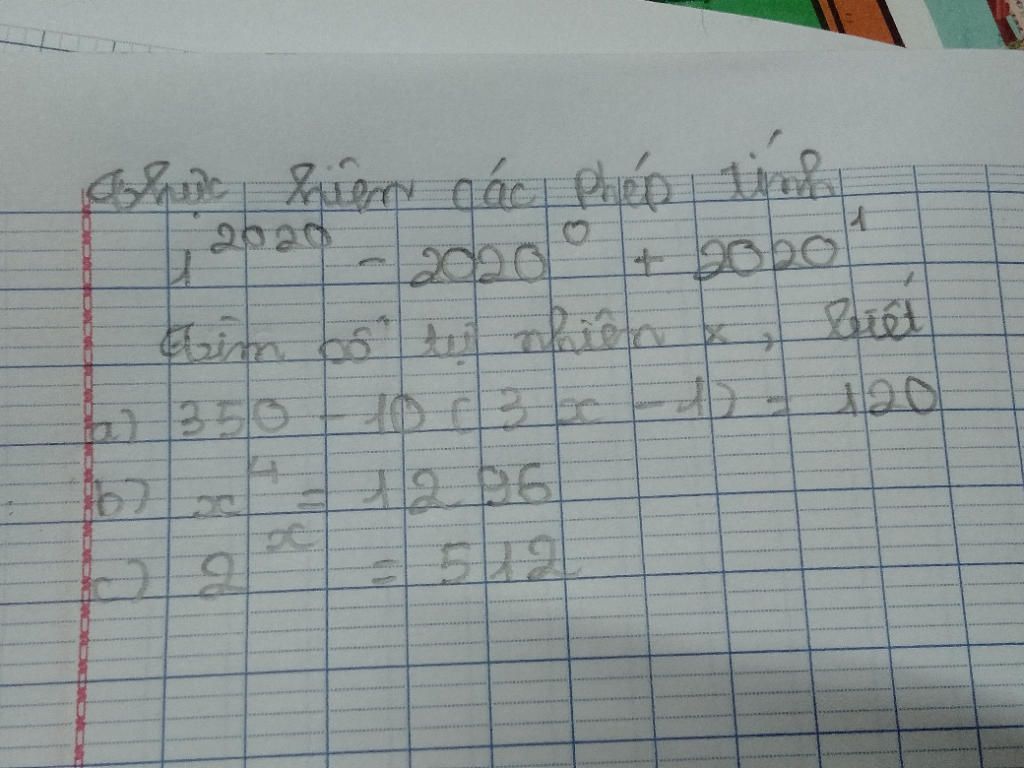 Thực hiện các phép tính
1²⁰²⁰ - 2020⁰ + 2020¹
Tìm số tự nhiên x, biết
a) 350 - 10 ( 3 x - 1) = 120
b) x⁴ = 1296
c) 2ˣ = 512